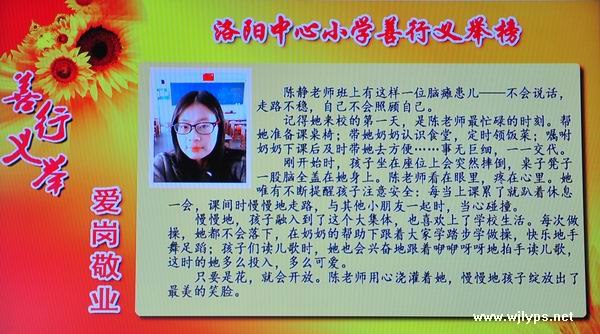 洛阳中心小学善行义举榜
善行
义举
爱岗敬业
陈静老师班上有这样一位脑瘫患儿——不会说话,
走路不稳,自己不会照顾自己。
记得她来校的第一天,是陈老师最忙碌的时刻。帮
她准备课桌椅;带她奶奶认识食堂,定时领饭菜;嘱咐
奶奶下课后及时带她去方便……事无巨细,一一交代。
刚开始时,孩子坐在座位上会突然摔倒,桌子凳子
一股脑全盖在她身上。陈老师看在眼里,疼在心里。她
唯有不断提醒孩子注意安全:每当上课累了就趴着休息
一会,课间时慢慢地走路,与其他小朋友一起时,当心碰撞。
慢慢地,孩子融入到了这个大集体,也喜欢上了学校生活。每次做
操,她都不会落下,在奶奶的帮助下跟着大家学踏步学做操,快乐地手
舞足蹈;孩子们读儿歌时,她也会兴奋地跟着咿咿呀呀地拍手读儿歌,
这时的她多么投入,多么可爱。
只要是花,就会开放。陈老师用心浇灌着她,慢慢地孩子绽放出了
最美的笑脸。
www.wjlyps.net